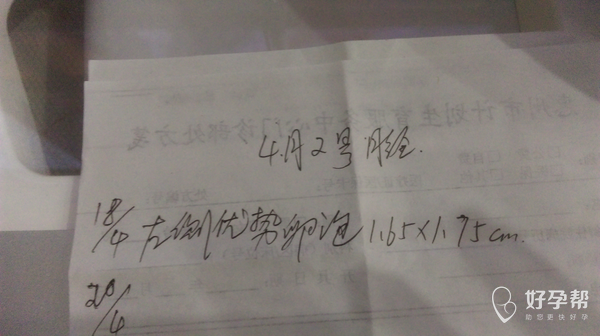 4月2号月经.
18/4 左侧优势卵泡1.65×1.75cm.
20/4
好孕帮
助您更快好孕